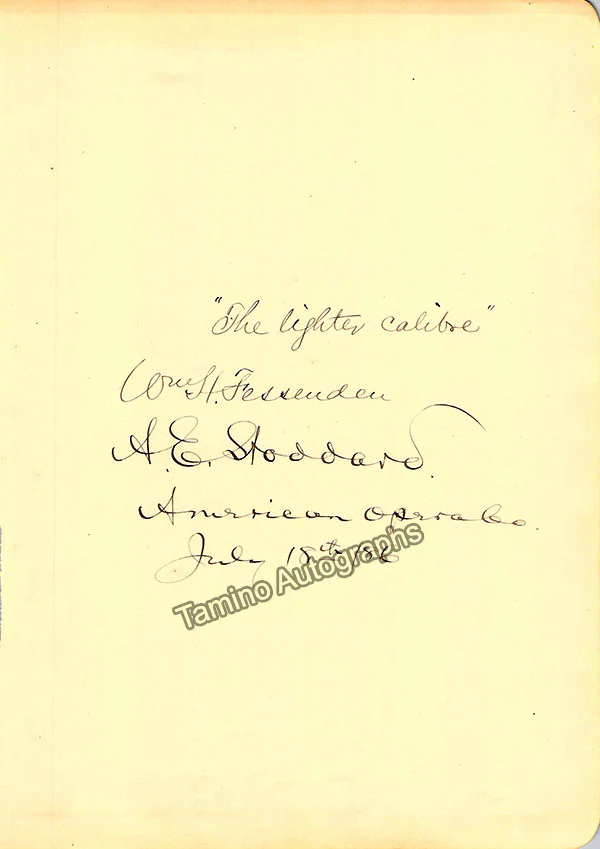 "The lighter calibre"
Wm. H. Fessenden
A. E. Stoddard.
American Opera Co.
July 18th '86
Tamino Autographs